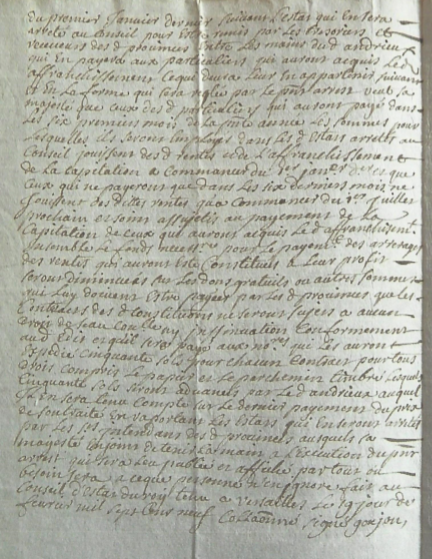 du premier Janvier dernier suivant l'estat qui en sera
arresté au Conseil pour estre remis par les tresoriers et
receveurs des d provinces entre les mains dud andrieu
qui en payera aux particuliers qui auront acquis led
affranchissement ce que devra leur en appartenir suivant
et en la forme qui sera reglée par le pnt arrest veut sa
majesté que ceux des d particuliers qui auront payé dans
les six premiers mois de la pnte année les sommes pour
lesquelles ils seront employez dans les d Estats arrestés au
Conseil jouissent des d rentes et de l'affranchissement
de la Capitation a commancer du 1er janer der et que
ceux qui ne payeront que dans les six derniers mois ne
jouissent des dittes rentes qu'a commancer du 1er juillet
prochain et soient assujetis au payement de la
Capitation de ceux qui auront acquis le d affranchissemt
Ensemble le fonds necessre pour le payent des arrerages
des rentes qui auront esté Constituées a leur profit
seront diminuées sur les dons gratuits ou autres sommes
que luy doivent estre payées par les d provinces que les
Contracts des d Constitutions ne seront sujets a aucun
droit de sceau Conlle ny jnsinuation Conformement
aud Edit et qu'il sera payé aux nores qui les auront
Expedié Cinquante sols pour chacun Contract pour tous
droits compris le papier et le parchemin timbré lesquels
Cinquante sols seront advancés par le d andrieu auquel
il en sera tenu compte sur le dernier payement du prix
de son traité En raportant les Estats qui en seront arrestés
par les srs jntendans des d provinces ausquels sa
majesté enjoint de tenir la main a l'execution du pnt
arrest qui sera leu publié et affiché par tout ou
besoin sera a ce que personne n'en ignore fait au
Conseil d'Estat du roy tenu a versailles le 19 jour de
fevrier mil sept cens neuf Collaonné signé goujon